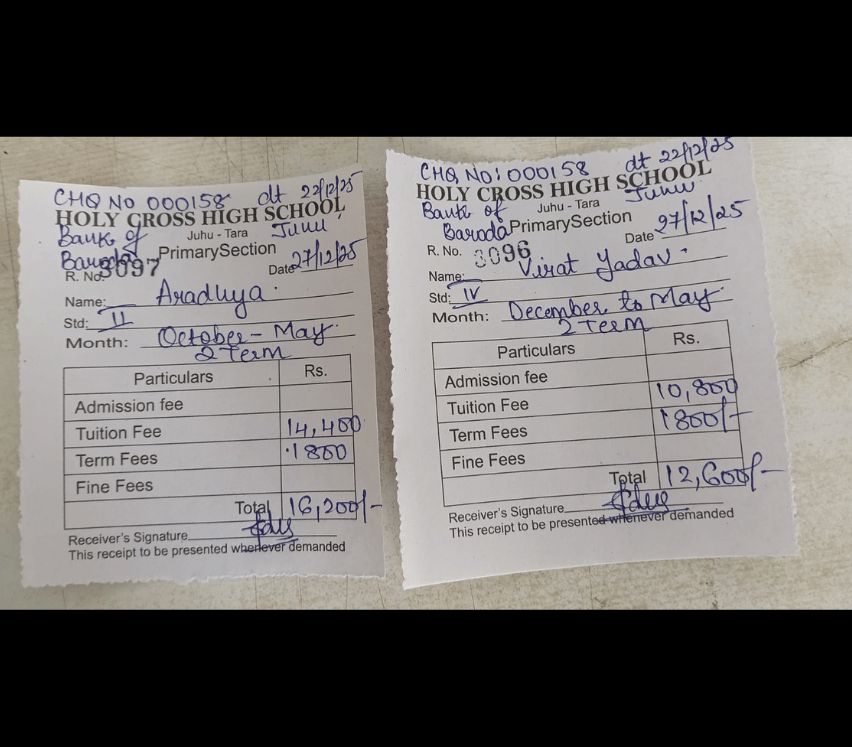 CHQ NO 000158 dt 22/12/25
HOLY CROSS HIGH SCHOOL
Bank of Juhu - Tara Juhu
Baroda Primary Section
R. No. 3097 Date 27/12/25
Name: Aradhya
Std: II
Month: October - May
2 Term
Particulars Rs.
Admission fee
Tuition Fee 14,400
Term Fees 1800
Fine Fees
Total 16,200/-
Receiver's Signature
This receipt to be presented whenever demanded
CHQ NO: 000158 dt 22/12/25
HOLY CROSS HIGH SCHOOL
Bank of Juhu - Tara Juhu
Baroda Primary Section
R. No. 3096 Date 27/12/25
Name: Virat Yadav
Std: IV
Month: December to May
2 Term
Particulars Rs.
Admission fee
Tuition Fee 10,800
Term Fees 1800/-
Fine Fees
Total 12,600/-
Receiver's Signature
This receipt to be presented whenever demanded